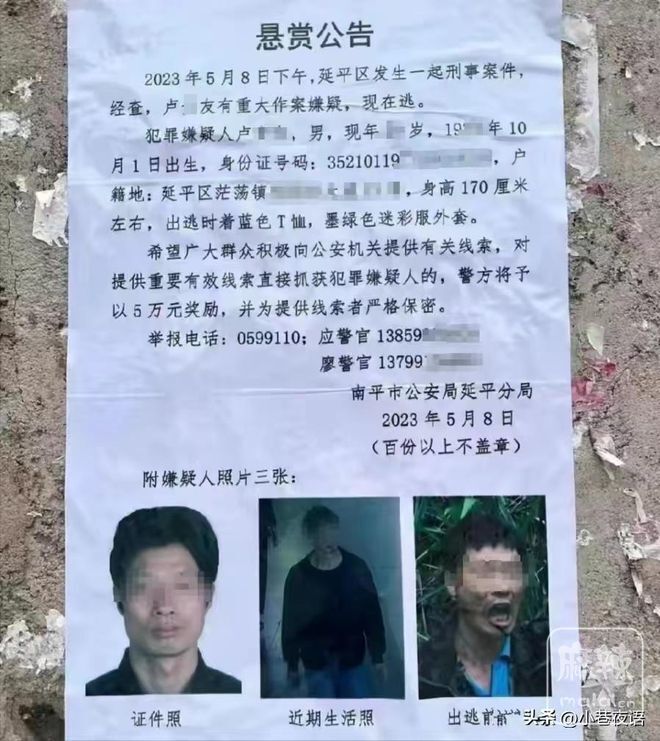 悬赏公告
2023年5月8日下午,延平区发生一起刑事案件,
经查,卢 友有重大作案嫌疑,现在逃。
犯罪嫌疑人卢 ,男,现年 岁,19 年10
月1日出生,身份证号码:35210119 ,户
籍地:延平区茫荡镇 ,身高170厘米
左右,出逃时着蓝色T恤,墨绿色迷彩服外套。
希望广大群众积极向公安机关提供有关线索,对
提供重要有效线索直接抓获犯罪嫌疑人的,警方将予
以5万元奖励,并为提供线索者严格保密。
举报电话:0599110;应警官13859
廖警官13799
南平市公安局延平分局
2023年5月8日
(百份以上不盖章)
附嫌疑人照片三张:
证件照
近期生活照
出逃前
麻辣
mala.cn
头条@小巷夜话